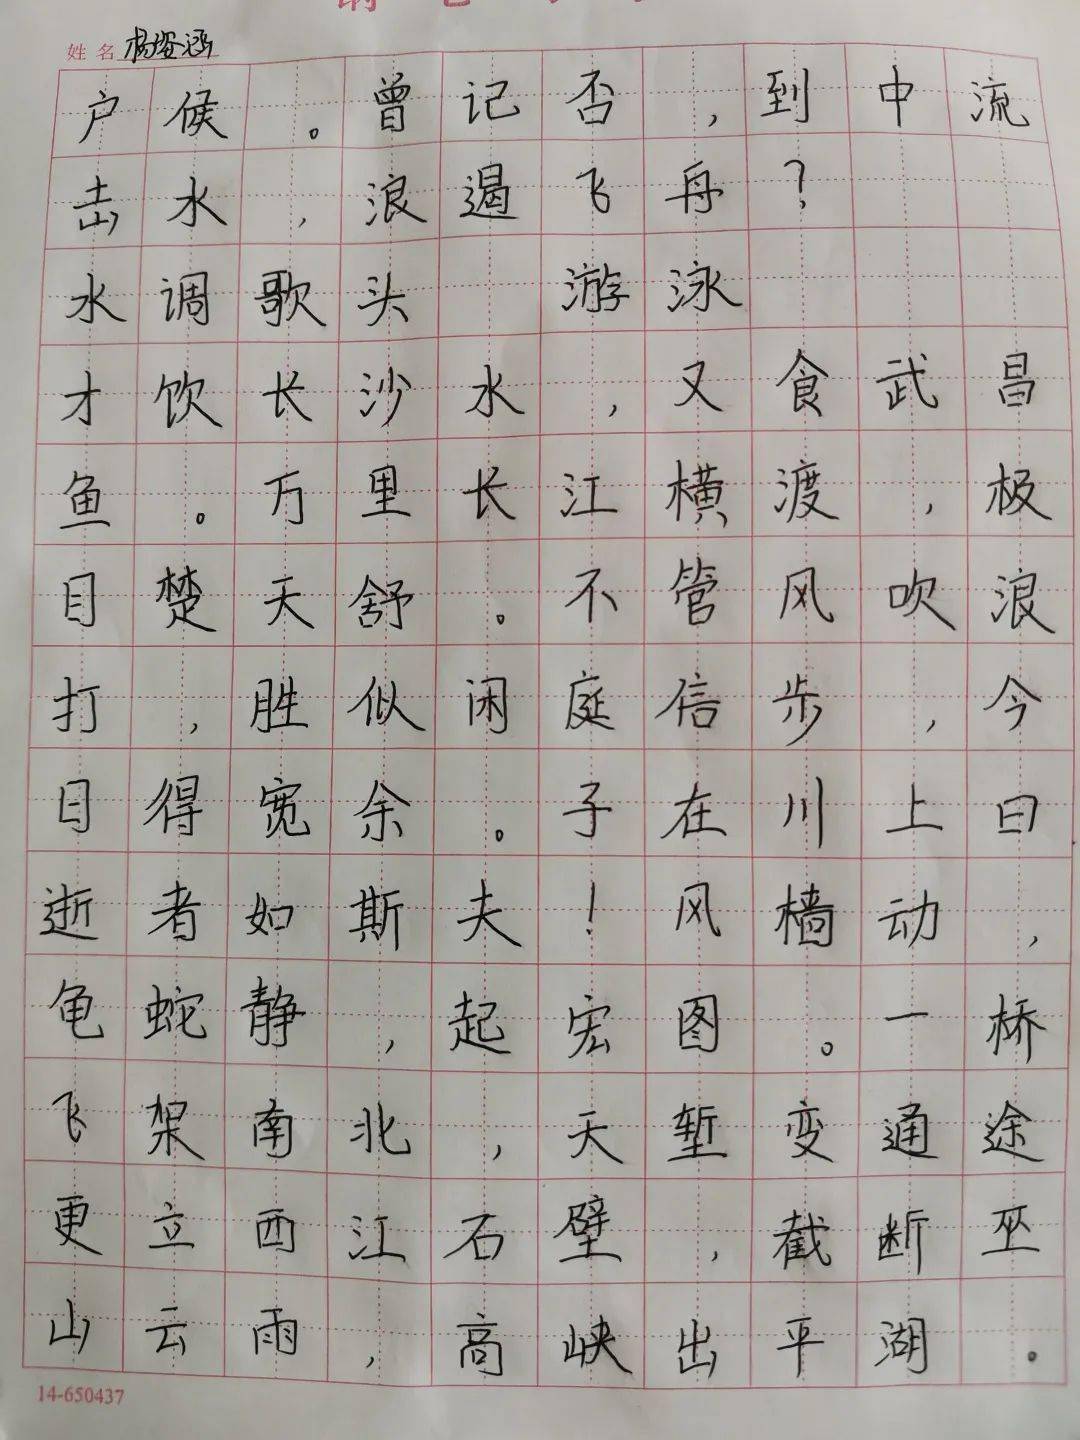 姓名
户侯。曾记否,到中流
击水,浪遏飞舟?
水调歌头 游泳
才饮长沙水,又食武昌
鱼。万里长江横渡,极
目楚天舒。不管风吹浪
打,胜似闲庭信步,今
日得宽余。子在川上曰
逝者如斯夫!风樯动,
龟蛇静,起宏图。一桥
飞架南北,天堑变通途
更立西江石壁,截断巫
山云雨,高峡出平湖。
14-650437